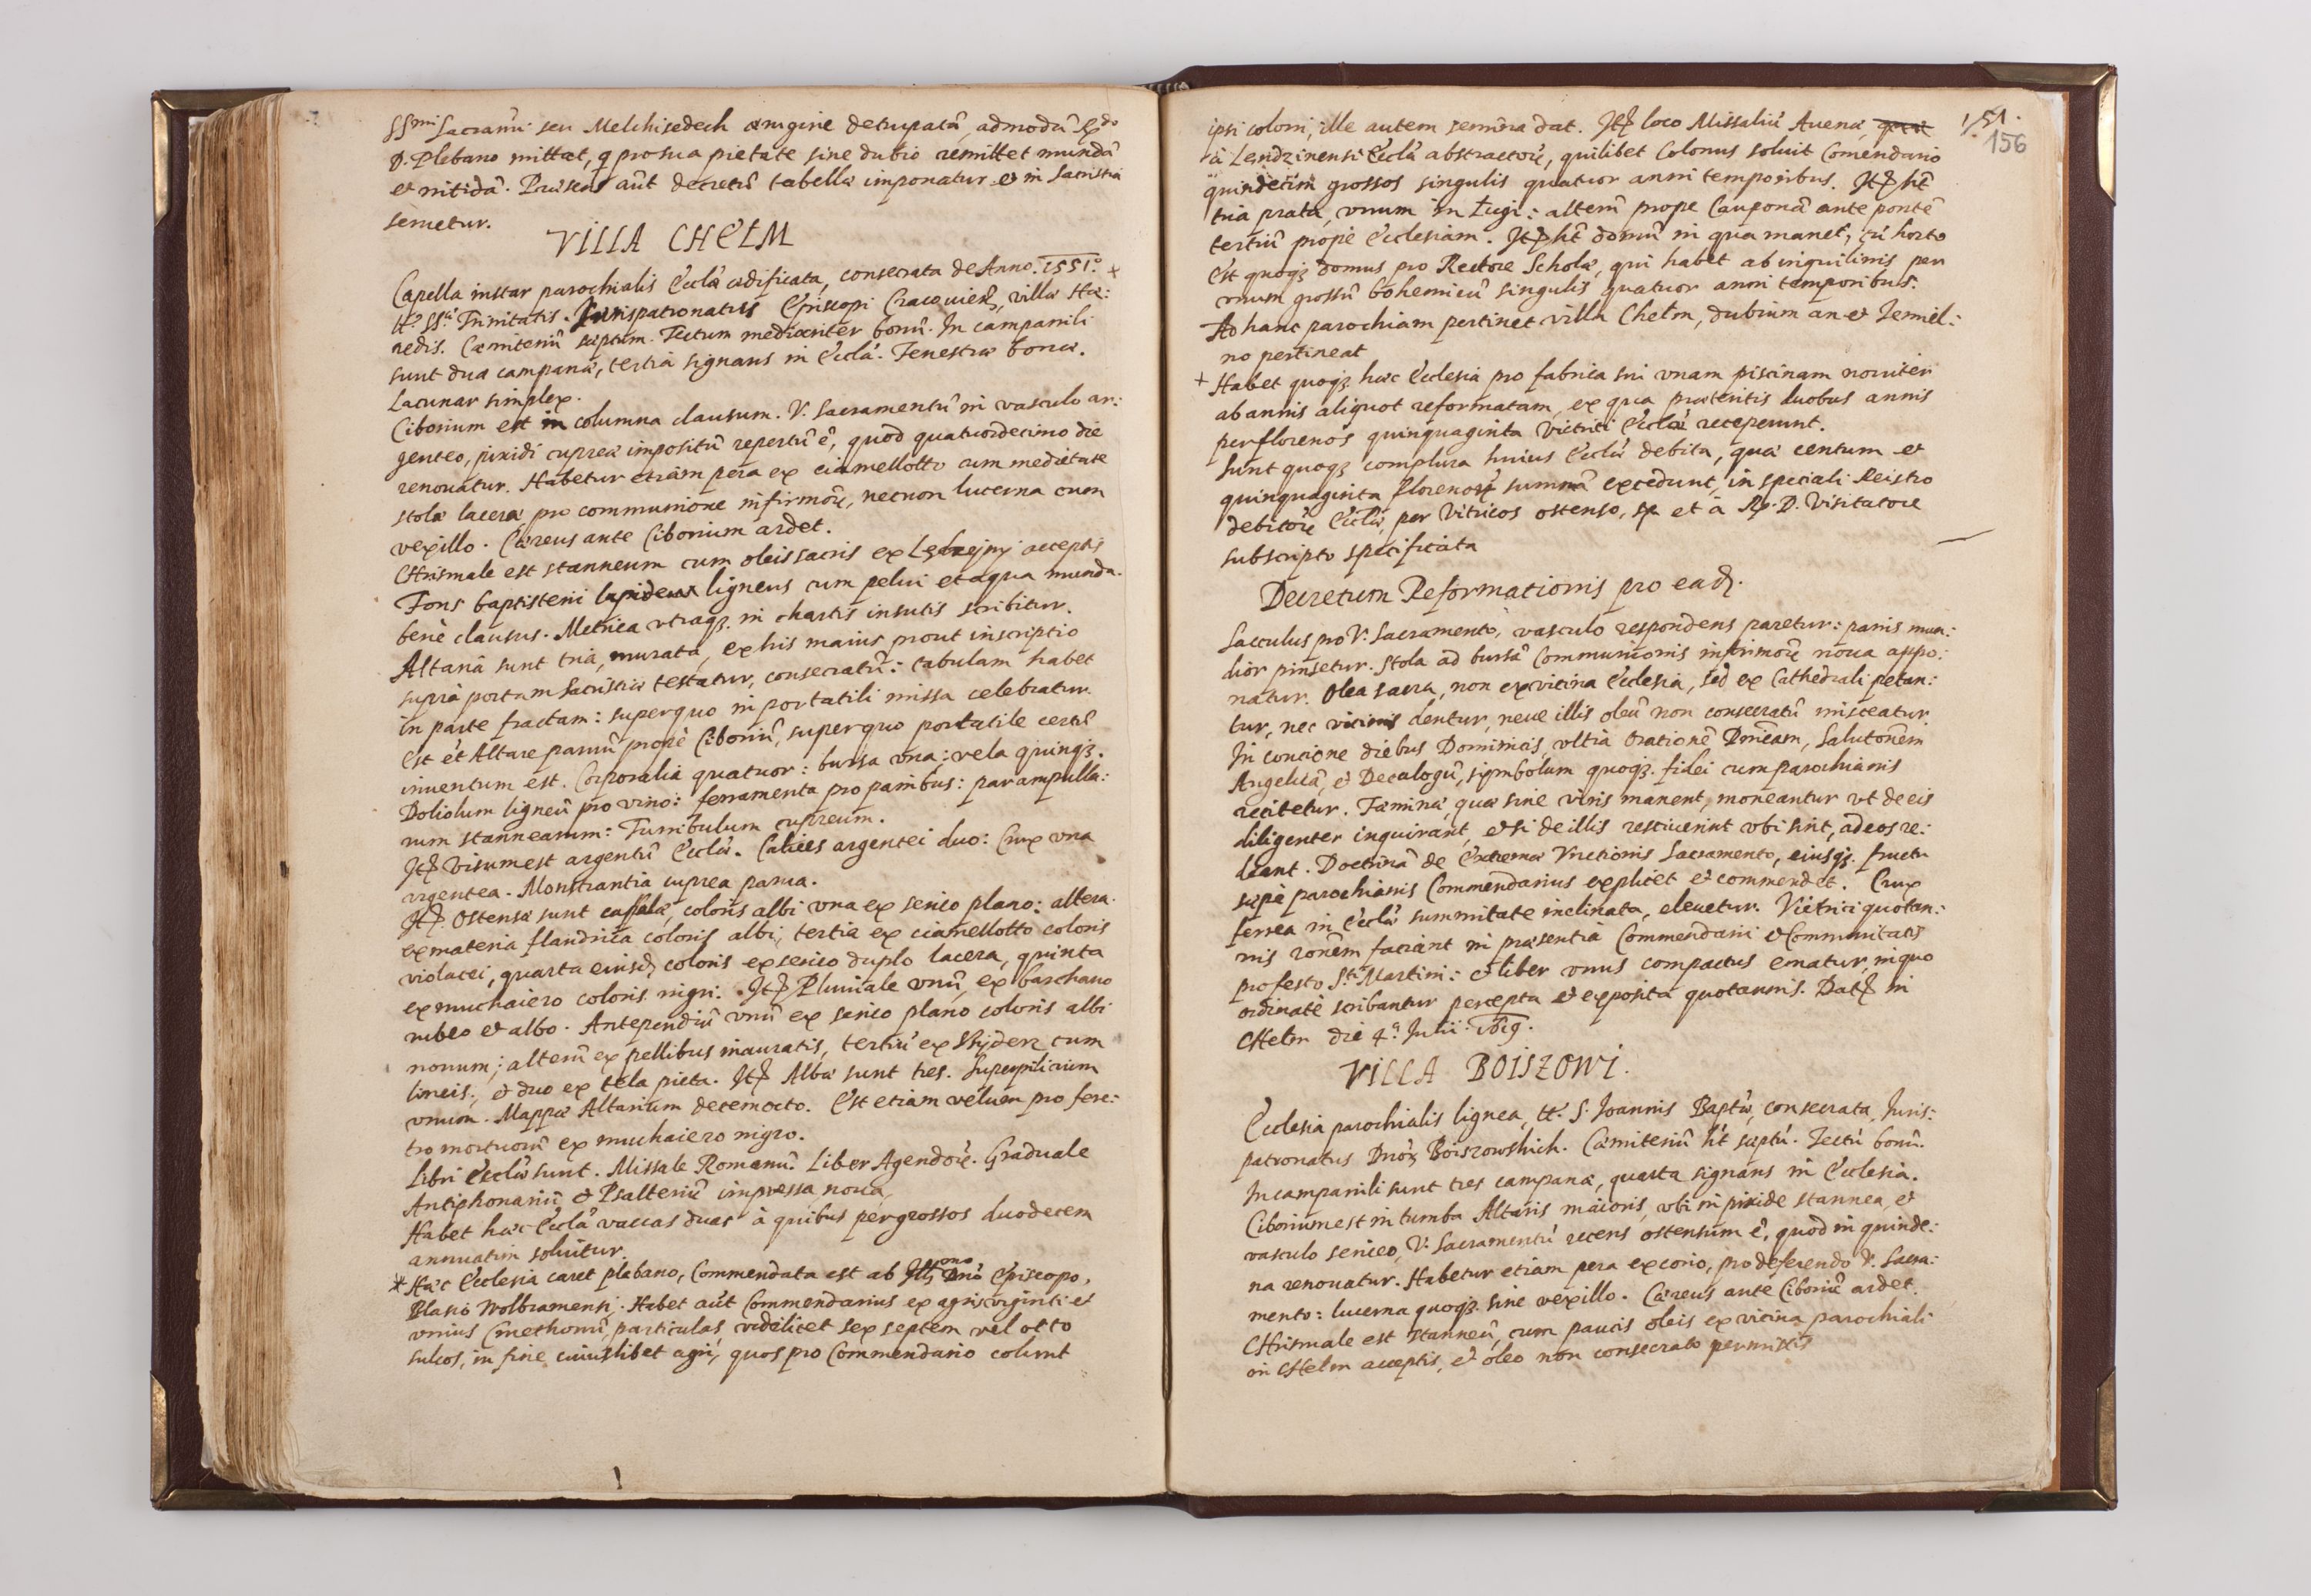 SSmi Sacram̃ti seu Melchisedech ærugine deturpatã, admodũ Rdo
D. Plebano mittat, q̃ pro sua pietate sine dubio remittet mundã
et nitidã. Præsens aũt decretũ tabellæ imponatur et in Sacristia
seruetur.
VILLA CHELM
Capella instar parochialis Eccłæ ædificata, consecrata de Anno. 1551. +
tt. SSæ Trinitatis. Jurispatronatus Episcopi Cracouień, villæ Hæ:
redis. Cæmiteriũ sæptum. Tectum mediocriter bonũ. In campanili
sunt duæ campanæ, tertia signans in Eccłã. Fenestræ bonæ.
Lacunar simplex.
Ciborium est in columna clausum. V. Sacramentũ in vasculo ar:
genteo, pixidi cupreæ impositũ repertũ ẽ, quod quatuordecimo die
renouatur. Habetur etiam pera ex ciamellotto cum medietate
stolæ laceræ pro communione infirmorũ, necnon lucerna cum
vexillo. Cæreus ante Ciborium ardet.
Chrismale est stanneum cum oleis sacris ex acceptis
Fons baptisterii lapideus ligneus cum pelui et aqua munda.
benè clausus. Metrica vtraqꝫ. in chartis insutis scribitur.
Altaria sunt tria, murata, ex his maius prout inscriptio
supra portam Sacristiæ testatur, consecratũ: tabulam habet
in parte fractam: superquo in portatili missa celebratur.
Est et Altare paruũ propè Ciboriũ, superquo portatile certũ
inuentum est. Corporalia quatuor: bursa vna: vela quinqꝫ.
Doliolum ligneũ pro vino: ferramenta pro panibus: par ampulla:
rum stannearum: Turribulum cupreum.
Itẽ Visum est argentũ Eccłæ. Calices argentei duo: Crux vna
argentea. Monstrantia cuprea parua.
Itẽ. Ostensæ sunt casulæ, coloris albi vna ex serico plano: altera
ex materia flandrica coloris albi, tertia ex ciamellotto coloris
violacei, quarta eiusd coloris ex serico duplo lacera, quinta
ex muchaiero coloris nigri. Itẽ Pluuiale vnũ, ex barchano
rubeo et albo. Antependiũ vnũ ex serico plano coloris albi
nouum; alterũ ex pellibus inauratis, tertiũ ex cum
lineis, et duo ex tela picta. Itẽ Albæ sunt tres. Superpilicium
vnum. Mappæ Altarium decemocto. Est etiam velum pro fere:
tro mortuorũ ex muchaiero nigro.
Libri Eccłæ sunt. Missale Romanũ. Liber Agendorũ. Graduale
Antiphonariũ et Psalteriũ impressa noua,
Habet hæc Eccłã vaccas duas à quibus per grossos duodecem
annuatim soluitur.
* Hæc Ecclesia caret plebano, Commendata est ab Illmo Dnõ Episcopo,
Blasio Wolbramensi. Habet aũt Commendarius ex agris viginti et
vnius Cmethonũ, particulas, videlicet sex septem vel octo
sulcos, in fine cuiuslibet agri, quos pro Commendario colunt
151.
156
ipsi coloni, ille autem semina dat. Itẽ loco Missaliũ Auenæ,
à Lendzinensi Eccłã abstractorũ, quilibet Colonus soluit Comendario
quindecim grossos singulis quatuor anni temporibus. Itẽ ht̃
tria prata, vnum in Ługi: alterũ prope Cauponã ante pontẽ
tertiũ propè Ecclesiam. Itẽ ht̃ domũ in qua manet, cũ horto
Est quoqꝫ domus pro Rectore Scholæ, qui habet ab inquilinis per
vnum grossũ bohemicũ singulis quatuor anni temporibus.
Ad hanc parochiam pertinet villa Chełm, dubium an et Iemiel:
no pertineat
+ Habet quoqꝫ hæc Ecclesia pro fabrica sui vnam piscinam nouiter
ab annis aliquot reformatam, ex qua præteritis duobus annis
per florenos quinquaginta Victrici Eccłæ receperunt.
Sunt quoqꝫ complura huius Eccłæ debita, quæ centum et
quinquaginta florenorũ summã excedunt, in speciali Reistro
debitorũ Eccłæ, per Vitricos ostenso, et à Rp. D. Visitatore
subscripto specificata
Decretum Reformationis pro eadẽ.
Sacculus pro V. Sacramento, vasculo respondens paretur: panis mun:
dior pinsetur. Stola ad bursã Communionis infirmorũ noua appo:
natur. Olea sacra, non ex vicina Ecclesia, sed ex Cathedrali petan:
tur, nec vicinis dentur, neue illis oleũ non consecratũ misceatur.
In concione diebus Dominicis, vltra Orationẽ Dnicam, Salutonẽm
Angelicã, et Decalogũ, simbolum quoqꝫ. fidei cum parochianis
recitetur. Fæminæ, quæ sine viris manent, moneantur vt de eis
diligenter inquirant, et si de illis resciuerint vbi sint, ad eos re:
deant. Doctrinã de Extremæ Vnctionis Sacramento, eiusqꝫ. fructu
sæpè parochianis Commendarius explicet et commendet. Crux
ferrea in Eccłæ summitate inclinata, eleuetur. Victrici quotan:
nis ronẽm faciant in præsentia Commendarii et Communitatis
pro festo Sti Martini: et liber vnus compactus ematur, in quo
ordinatè scribantur percepta et exposita quotannis. Datẽ in
Chełm die 4a Julii. 1619.
VILLA BOISZOWI.
Ecclesia parochialis lignea, tt. S. Joannis Baptæ, consecrata, Juris:
patronatus Dnorũ Boiszowskich. Cæmiteriũ ht̃ sæptũ. Tectũ bonũ.
In campanili sunt tres campanæ, quarta signans in Ecclesia.
Ciborium est in tumba Altaris maioris, vbi in pixide stannea, et
vasculo sericeo, V. Sacramentũ recens ostensum ẽ, quod in quinde:
na renouatur. Habetur etiam pera ex corio, pro deferendo V. Sacra:
mento: lucerna quoqꝫ sine vexillo. Cæreus ante Ciboriũ ardet.
Chrismale est stanneũ, cum paucis oleis ex vicina parochiali
in Chełm acceptis, et oleo non consecrato permixtis